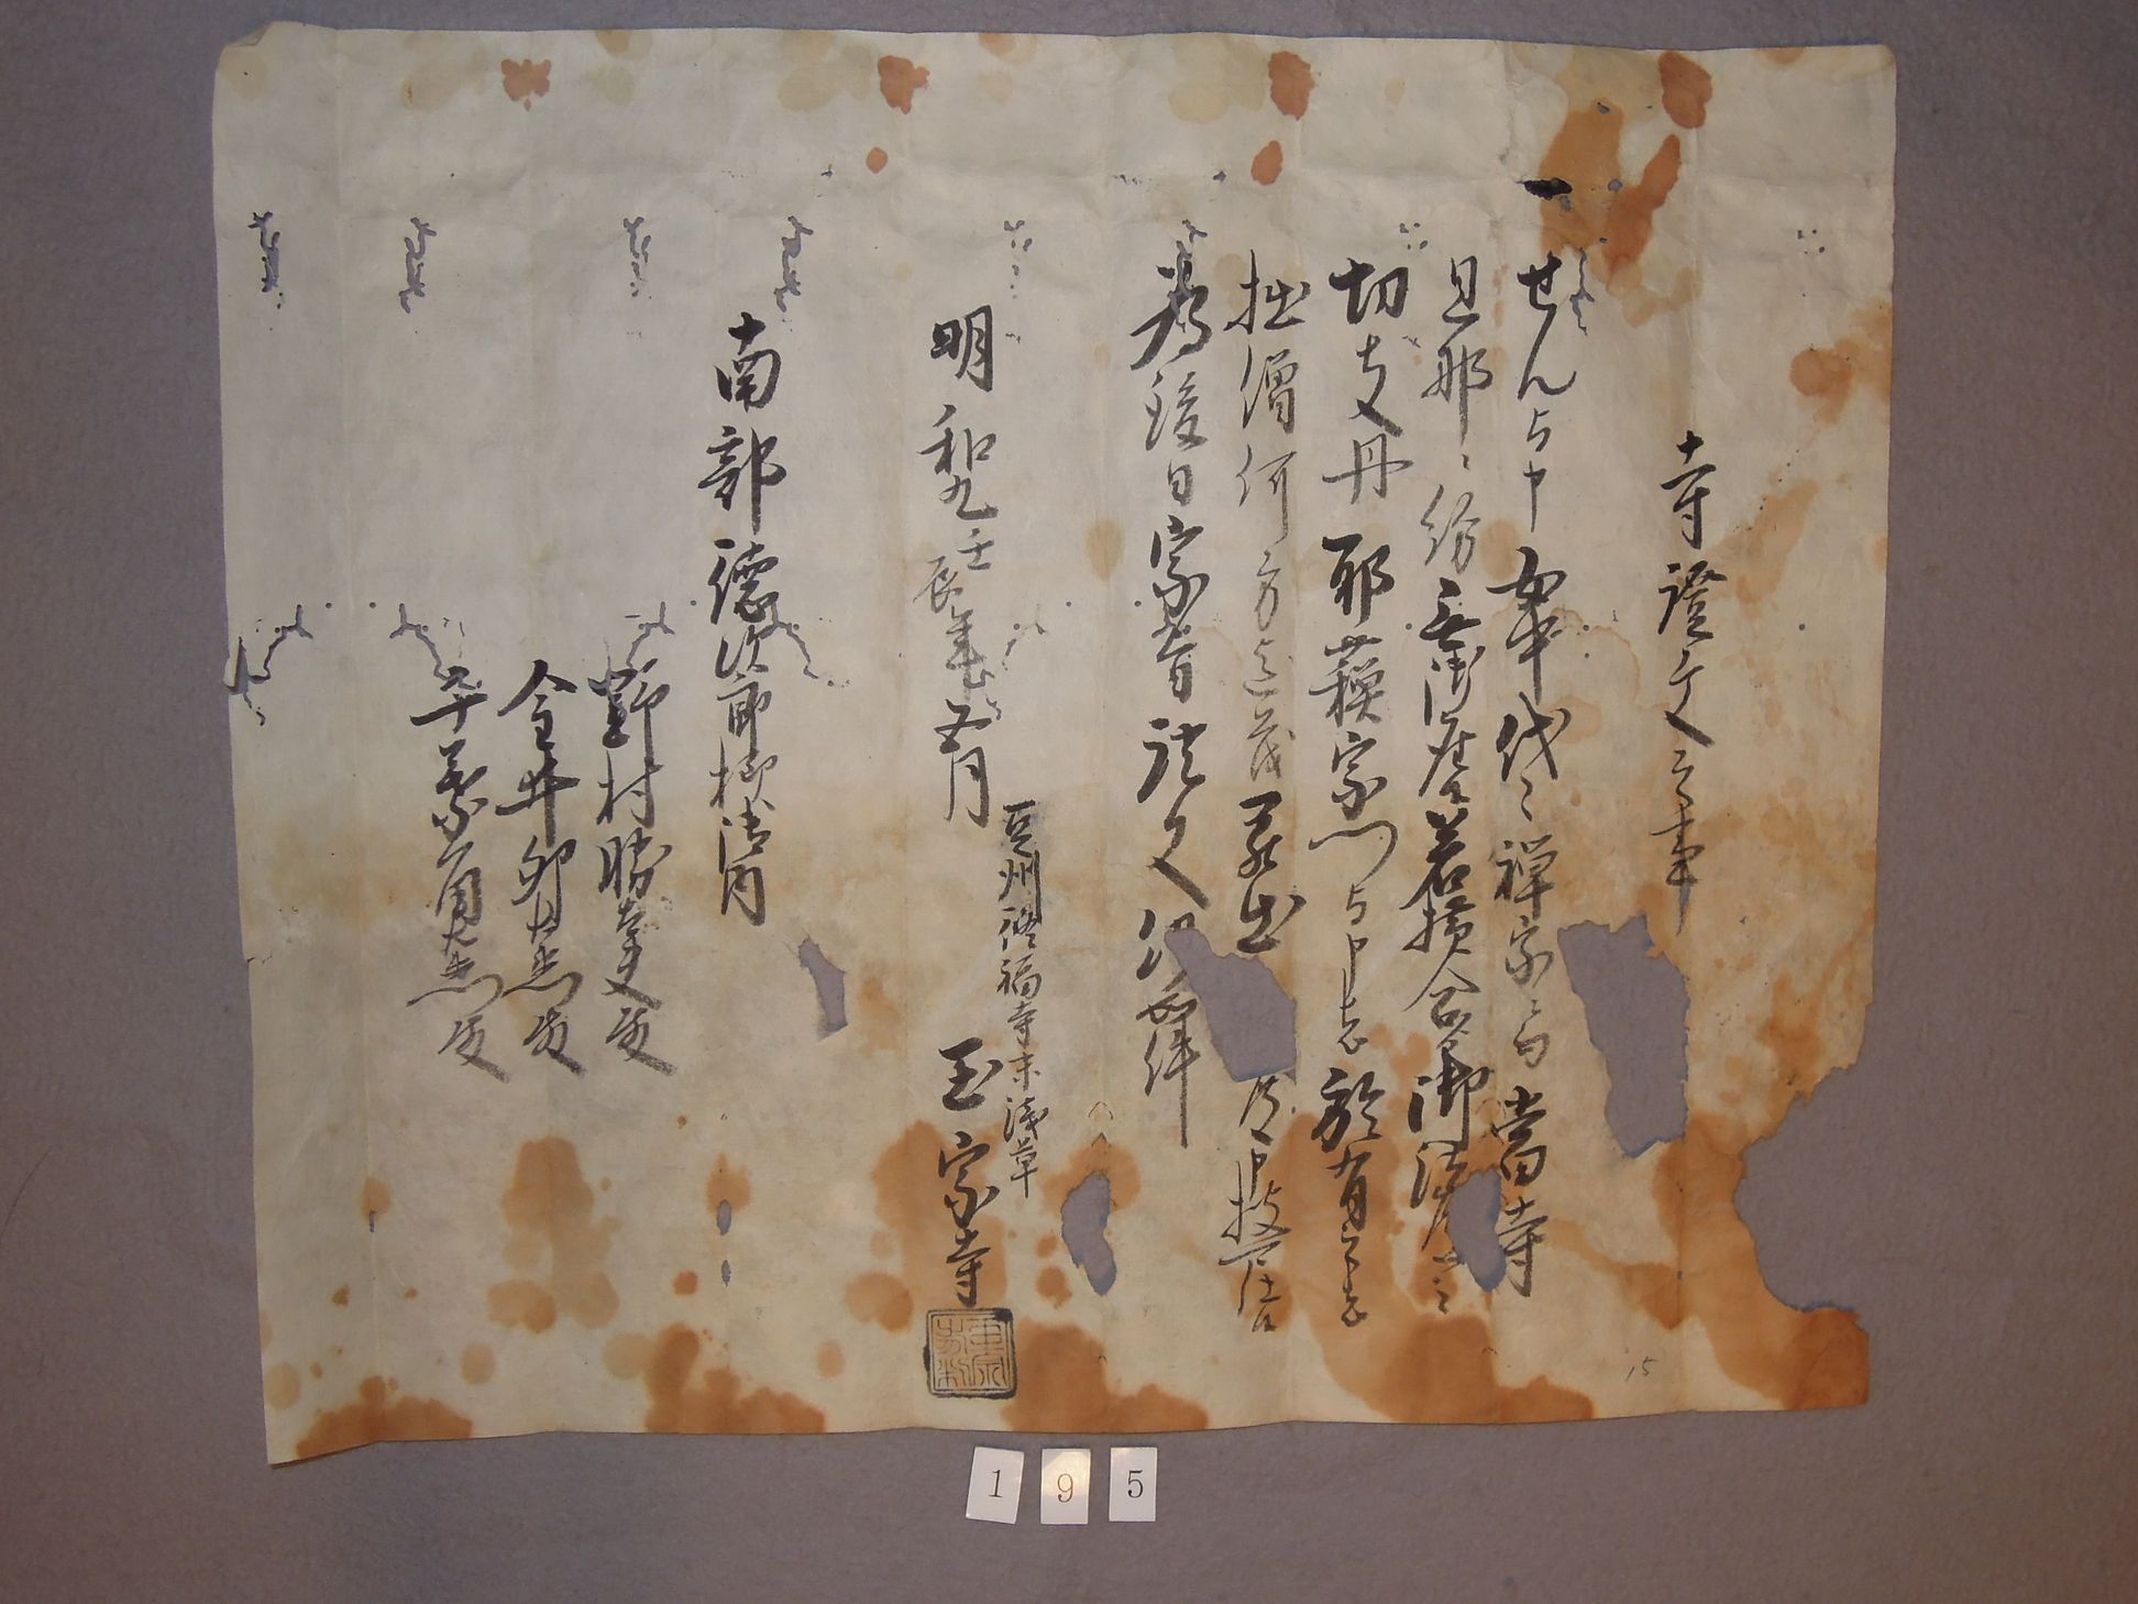 寺證文之事
一せんと申女中代々禅宗ニ而當寺
旦那ニ紛無御座若横合御法度之
切支丹耶蘓宗門与申者於有之者
拙僧何方迄茂罷出 申披可仕候
為後日宗旨證文仍而如件
明和九壬辰年五月
豆州修福寺末浅草
玉宗寺
南部徳次郎様御内
野村勝太夫殿
今井 殿
千葉角左衛門殿
195
15